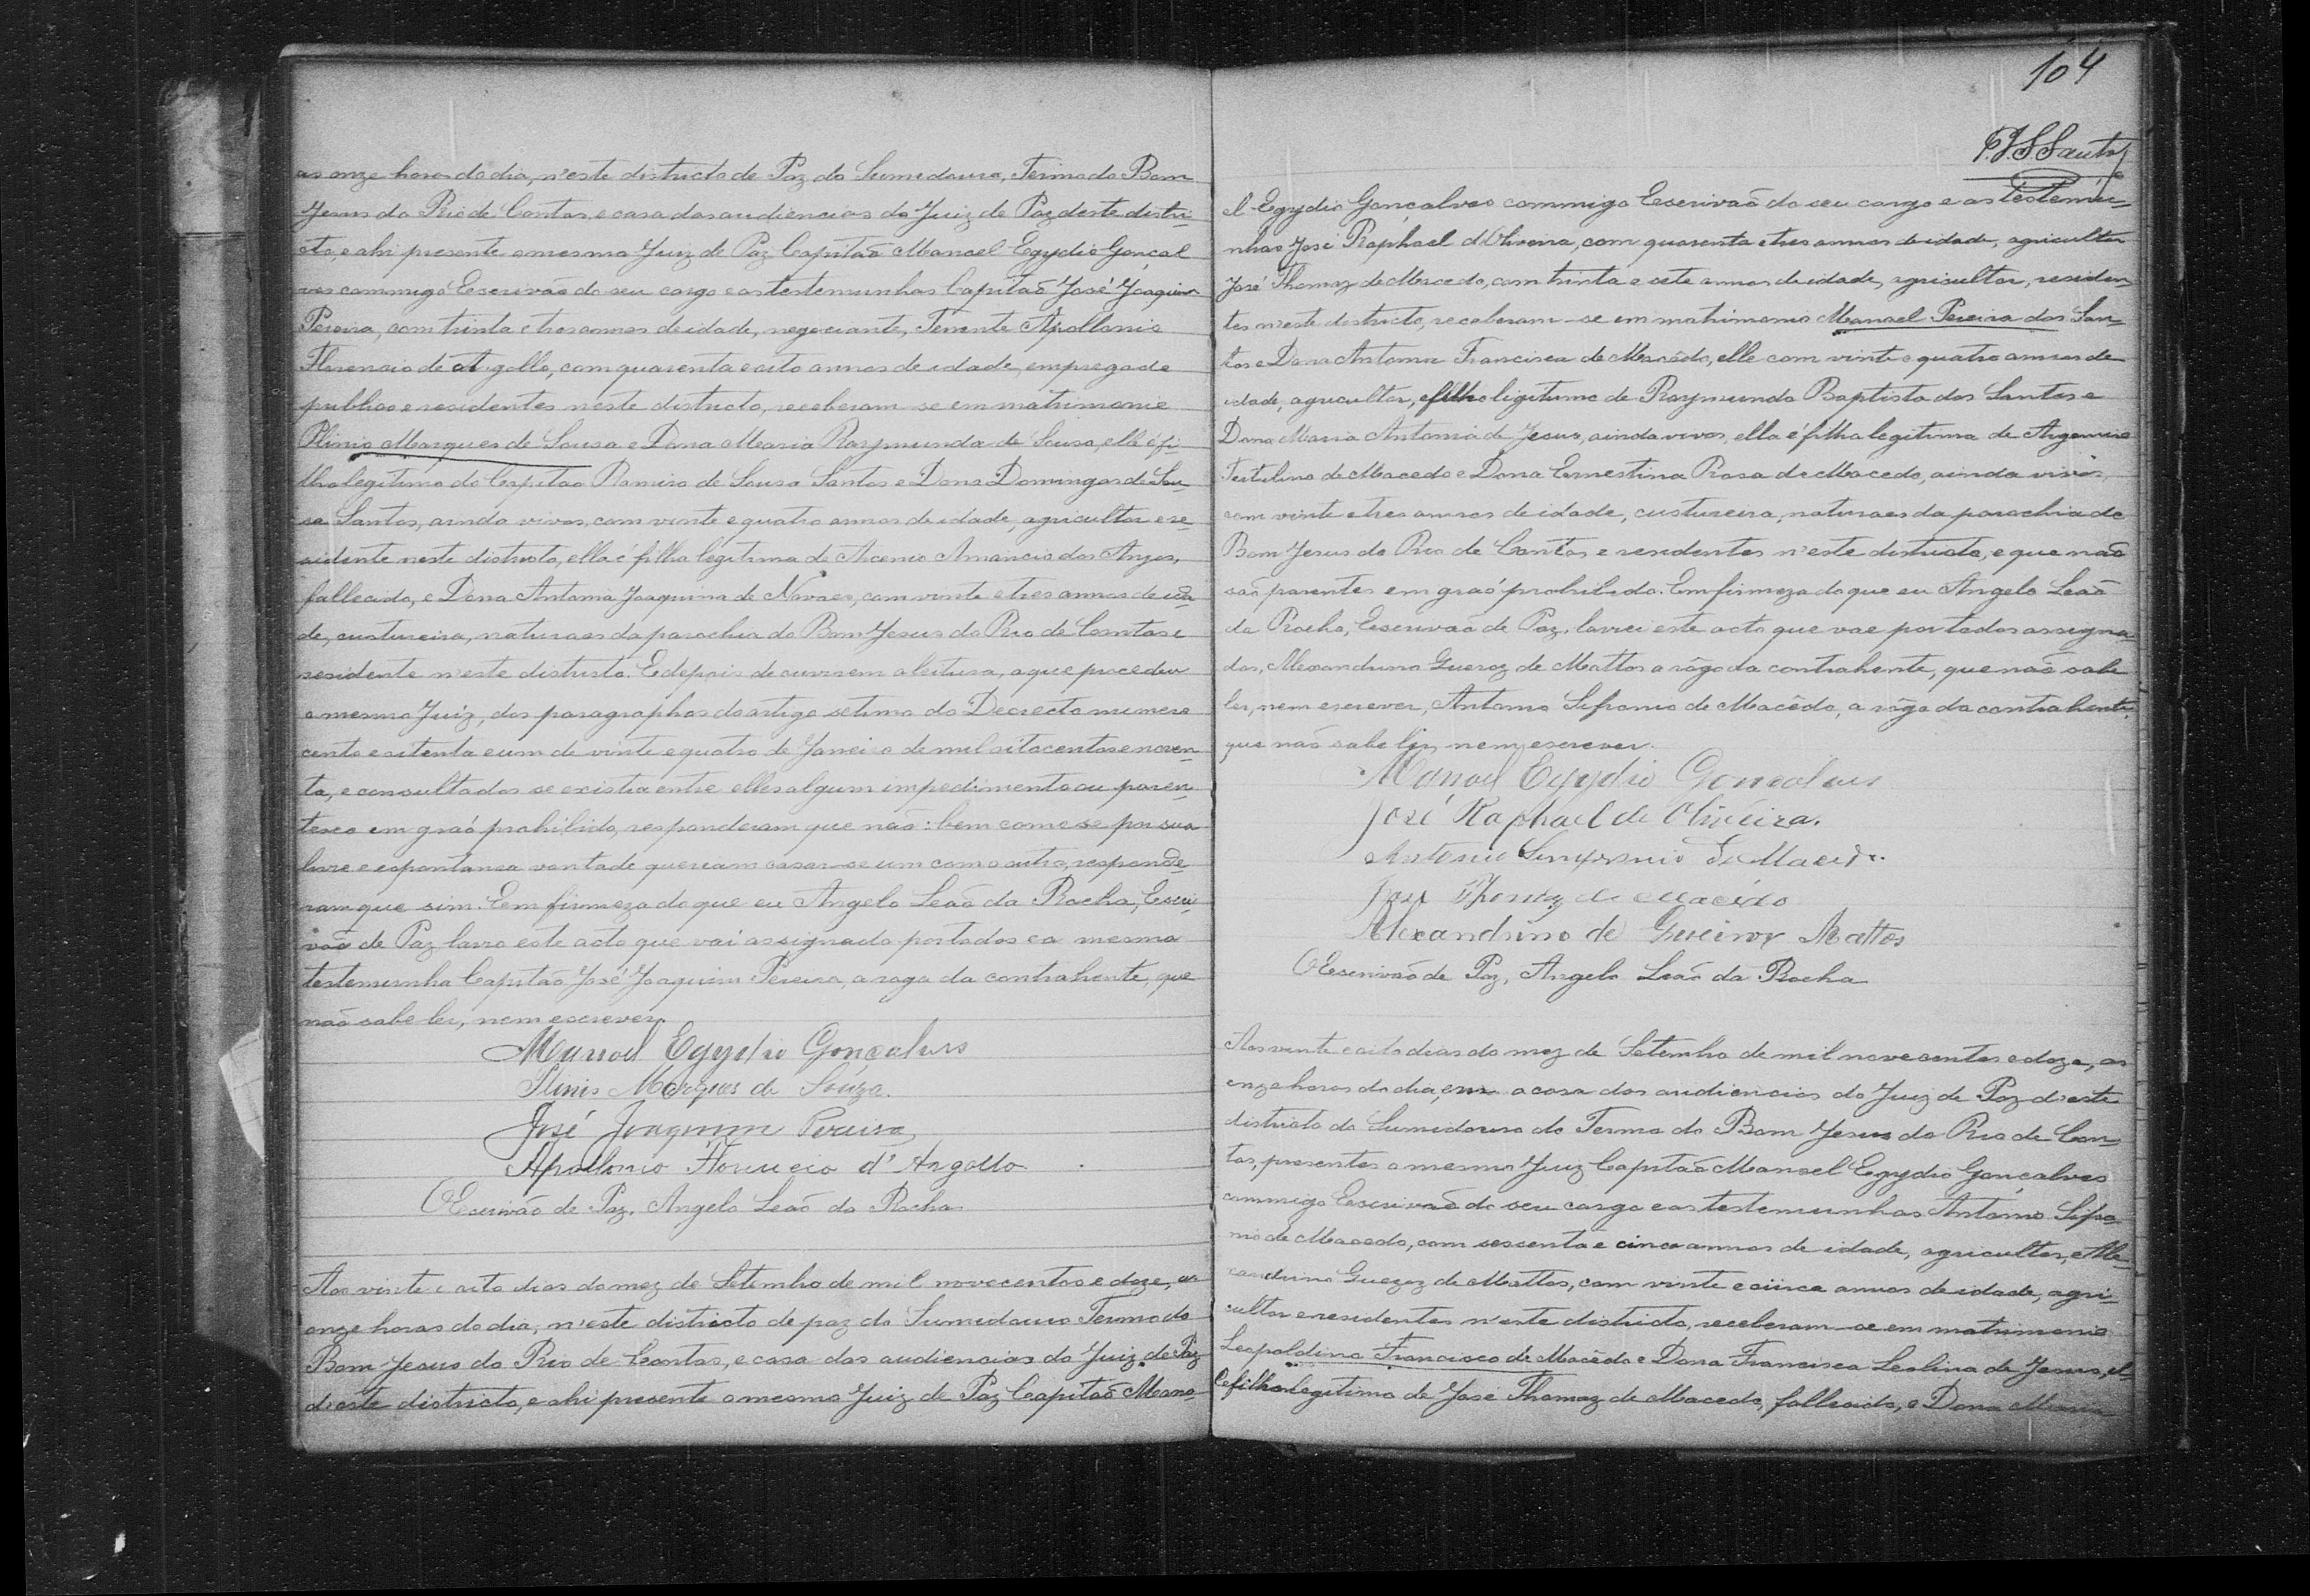 as onze horas do dia, n'este districto de Paz do Sumidouro, Termo do Bom
Jesus do Rio de Contas e casa das audiencias do Juiz de Paz deste distri-
cto e ahi presente o mesmo Juiz de Paz Capitaõ Manoel Egydio Gonçal
ves commigo Escrivaõ do seu cargo e as testemunhas Capitaõ José Joaquim
Pereira, com trinta e tres annos de idade, negociante, Tenente Apollonio
Florencio de Argollo, com quarenta e oito annos de idade, empregado
publico e residentes neste districto, receberam-se em matrimonio
Plinio Marques de Sousa e Dona Maria Raymunda de Sousa, elle é fi-
lho legitimo do Capitaõ Ramiro de Sousa Santos e Dona Domingas de Sou-
sa Santos, ainda vivos, com vinte e quatro annos de idade, agricultor e re-
sidente neste districto, ella é filha legitima de Arcenio Amancio dos Anjos,
fallecido, e Dona Antonia Joaquina de Novaes, com vinte e tres annos de ida-
de, custureira, naturaes da parochia do Bom Jesus do Rio de Contas e
residente n'este districto. E depois de ouvirem a leitura, a que procedeu
o mesmo Juiz, dos paragraphos do artigo setimo do Decrecto numero
cento e oitenta e um de vinte e quatro de Janeiro de mil oitocentos e noven-
ta, e consultados se existia entre elles algum impedimento ou paren-
tesco em graó prohibido, responderam que não: bem como se por sua
livre e espontanea vontade queriam casar-se um com o outro, responde-
ram que sim. Em firmeza do que eu Angelo Leaõ da Rocha, Escri-
vaõ de Paz lavro este acto que vai assignado por todos e a mesma
testemunha Capitaõ José Joaquim Pereira, a rogo da contrahente, que
naõ sabe ler, nem escrever.
Manoel Egydio Gonçalves
Plinio Marques de Souza.
José Joaquim Pereira
Apollonio Florencio d'Argollo
O Escrivaõ de Paz, Angelo Leaõ da Rocha
Aos vinte e oito dias do mez de Setembro de mil novecentos e doze, as
onze horas do dia, n'este districto de paz do Sumidouro Termo do
Bom Jesus do Rio de Contas, e casa das audiencias do Juiz de Paz
d'este districto, e ahi presente o mesmo Juiz de Paz Capitaõ Mano-
104
P.J.S.Santos
el Egydio Gonçalves commigo Escrivaõ do seu cargo e as testemu-
nhas José Raphael d'Oliveira, com quarenta e tres annos de idade, agricultor
José Thomaz de Macedo, com trinta e sete annos de idade, agricultor, residen-
tes n'este destricto, receberam-se em matrimonio Manoel Pereira dos San-
tos e Dona Antonia Francisca de Macêdo, elle com vinte e quatro annos de
idade, agricultor, e filho legitimo de Raymundo Baptista dos Santos e
Dona Maria Antonia de Jesus, ainda vivos, ella é filha legitima de Argemiro
Tertulino de Macedo e Dona Ernestina Rosa de Macedo, ainda vivos,
com vinte e tres annos de idade, custureira, naturaes da parochia do
Bom Jesus do Rio de Contas e residentes n'este districto, e que naõ
saõ parentes em graó prohibido. Em firmeza do que eu Angelo Leaõ
da Rocha, Escrivaõ de Paz, lavrei este acto que vae por todos assigna-
dos, Alexandrino Gueroz de Mattos a rôgo da contrahente, que naõ sabe
ler, nem escrever, Antonio Sifronio de Macêdo, a rôgo da contrahente,
que naõ sabe ler, nem escrever.
Manoel Egydio Goncalves
José Raphael de Oliveira.
Antonio Sinfronio de Macedo.
José Thomaz de Macêdo
Alexandrino de Mattos
O Escrivaõ de Paz, Angelo Leaõ da Rocha
Aos vinte e oito dias do mez de Setembro de mil nove centos e doze, as
onze horas do dia, em a casa das audiencias do Juiz de Paz d'este
districto do Sumidouro do Termo do Bom Jesus do Rio de Con-
tas, presentes o mesmo Juiz Capitaõ Manoel Egydio Gonçalves
commigo Escrivaõ do seu cargo e as testemunhas Antonio Sifro-
nio de Macedo, com sessenta e cinco annos de idade, agricultor, e Ale-
xandrino Gueroz de Mattos, com vinte e cinco annos de idade, agri-
cultor e residentes n'este districto, receberam-se em matrimonio
Leopoldino Francisco de Macêdo e Dona Francisca Leolina de Jesus, el-
le filho legitimo de José Thomaz de Macedo, fallecido, e Dona Maria